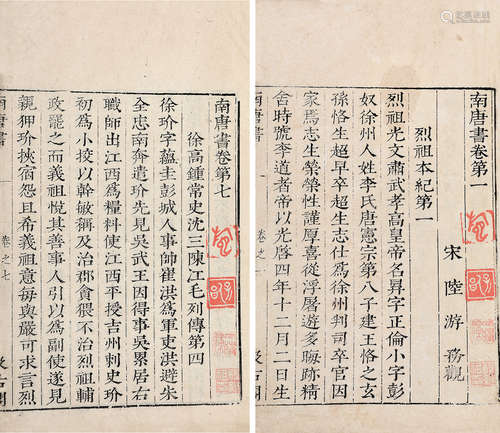 南唐書卷第一
宋 陸 游 務觀
烈祖本紀第一
烈祖光文肅武孝高皇帝名昪字正倫小字彭
奴徐州人姓李氏唐憲宗第八子建王恪之玄
孫恪生超早卒超生志仕爲徐州判司卒官因
家焉志生榮榮性謹厚喜從浮屠遊多晦跡精
舍時號李道者帝以光啓四年十二月二日生
南唐書
卷之一
南唐書卷第七
徐高鍾常史沈三陳江毛列傳第四
徐玠字蘊圭彭城人事帥崔洪爲軍吏洪避朱
全忠南奔遣玠先見吳武王因得事吳累居右
職師出江西爲糧料使江西平授吉州刺史玠
初爲小校以幹敏稱及治郡貪猥不治烈祖輔
政罷之而義祖悅其善事人引以爲副使遂見
親狎玠挾宿怨且希義祖意每與嚴可求言烈
南唐書
卷之七